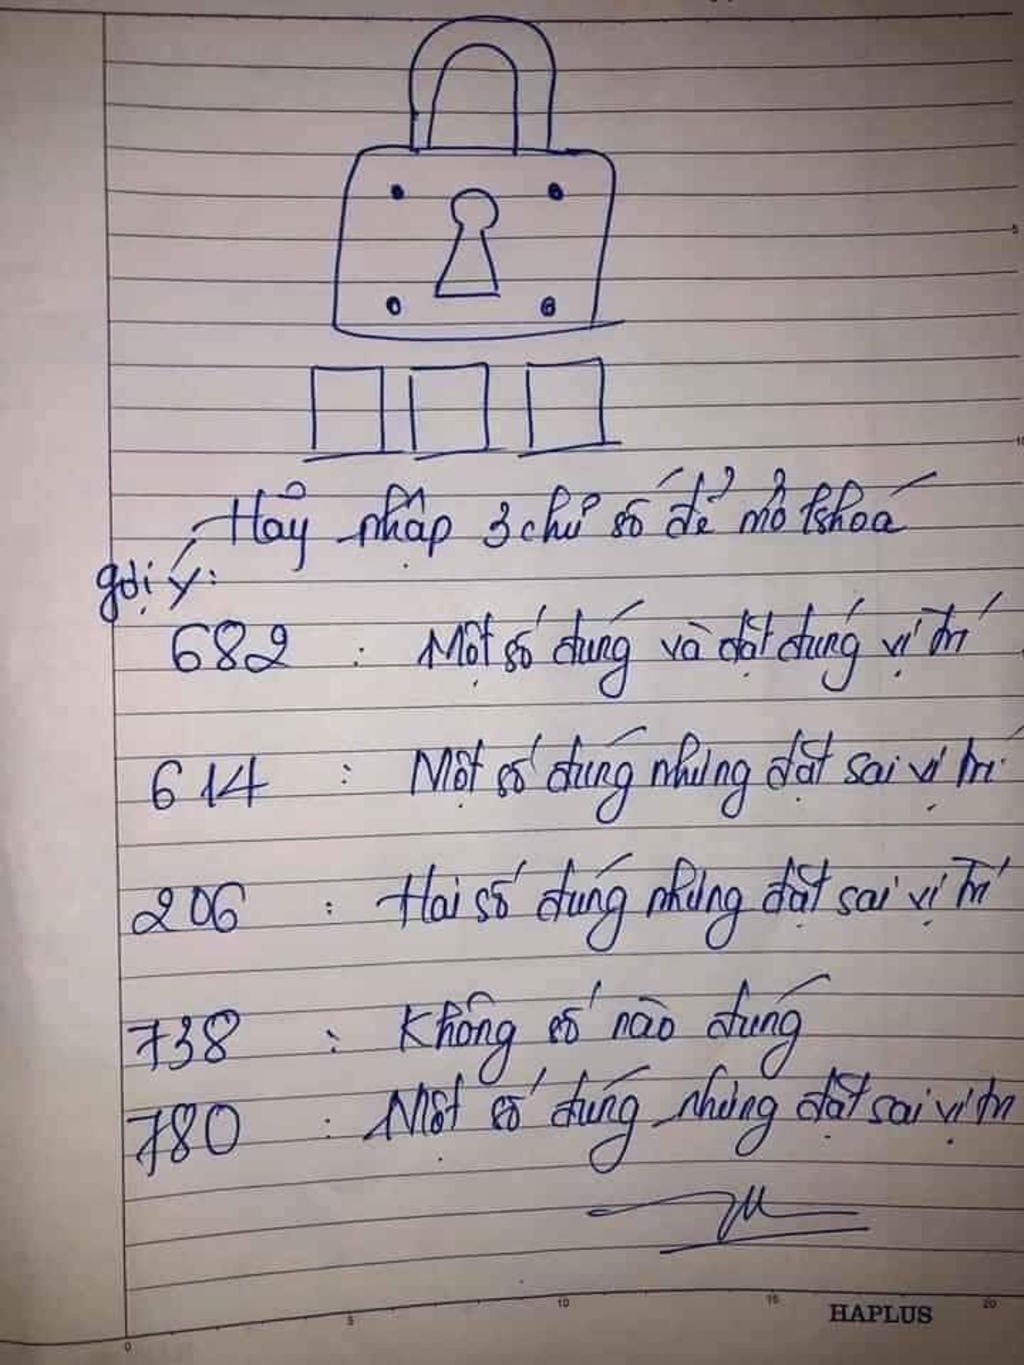 Hãy nhập 3 chữ số để mở khoá
gợi ý:
682 : Một số đúng và đặt đúng vị trí
614 : Một số đúng nhưng đặt sai vị trí
206 : Hai số đúng nhưng đặt sai vị trí
738 : Không số nào đúng
780 : Một số đúng nhưng đặt sai vị trí
5
10
0 5 10 15 20
HAPLUS